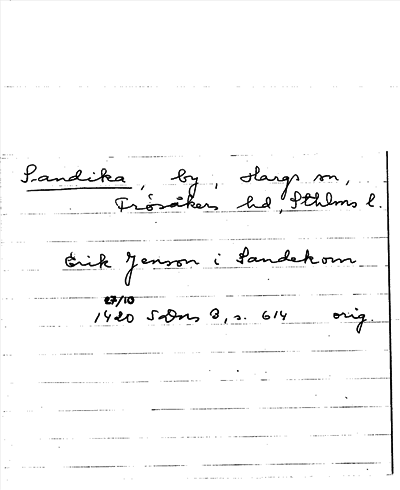 Sandika, by, Hargs sn,
Frösåkers hd, Sthlms l.
Erik Jenson i Sandekom
27/10
1420 SDns 3, s. 614 orig.